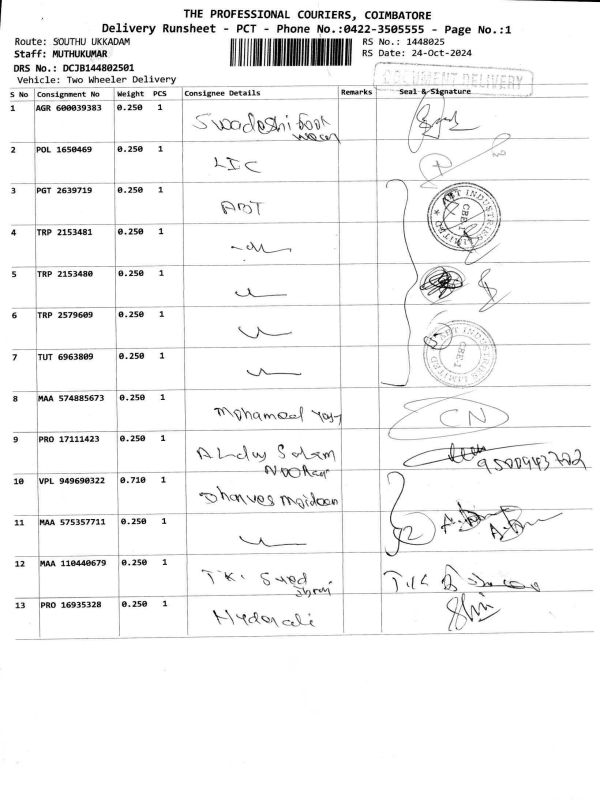 THE PROFESSIONAL COURIERS, COIMBATORE
Delivery Runsheet - PCT - Phone No.:0422-3505555 - Page No.:1
Route: SOUTHU UKKADAM
RS No.: 1448025
Staff: MUTHUKUMAR
RS Date: 24-Oct-2024
DRS No.: DCJB144802501
DOCUMENT DELIVERY
Vehicle: Two Wheeler Delivery
S No Consignment No Weight PCS Consignee Details Remarks Seal & Signature
1 AGR 600039383 0.250 1 Swadeshi
2 POL 1650469 0.250 1 LIC
3 PGT 2639719 0.250 1 ABT
4 TRP 2153481 0.250 1
5 TRP 2153480 0.250 1
6 TRP 2579609 0.250 1
7 TUT 6963809 0.250 1
8 MAA 574885673 0.250 1 Mohamed CN
9 PRO 17111423 0.250 1 Salam 9500943702
10 VPL 949690322 0.710 1
11 MAA 575357711 0.250 1
12 MAA 110440679 0.250 1 T.K. Syed
13 PRO 16935328 0.250 1 Hyderali